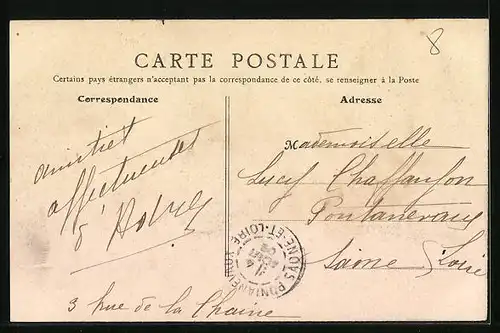 8
CARTE POSTALE
Certains pays étrangers n'acceptant pas la correspondance de ce côté, se renseigner à la Poste
Correspondance
Adresse
amitiés
affectueuses
3 rue de la Chaine
Mademoiselle
Lucy Chaffanjon
Pontanevaux
Saône & Loire
PONTANEVAUX
SAONE-ET-LOIRE